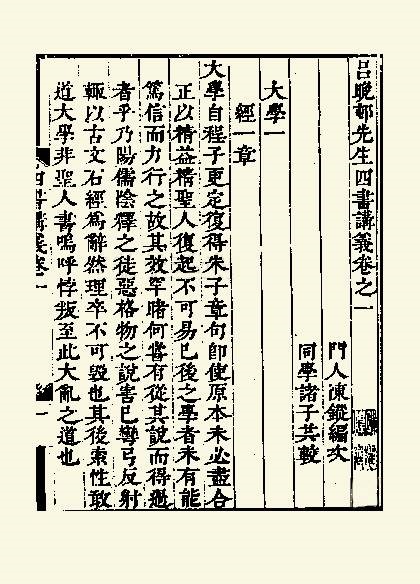 呂晚邨先生四書講義卷之一
門人陳鏦編次
同學諸子共較
大學一
經一章
大學自程子更定復得朱子章句卽使原本未必盡合
正以精益精聖人復起不可易已後之學者未有能
篤信而力行之故其效罕睹何嘗有從其說而得過
者乎乃陽儒陰釋之徒惡格物之說害已彎弓反射
輒以古文石經爲辭然理卒不可毀也其後索性敢
道大學非聖人書嗚呼悖叛至此大亂之道也
四書講義卷一
一